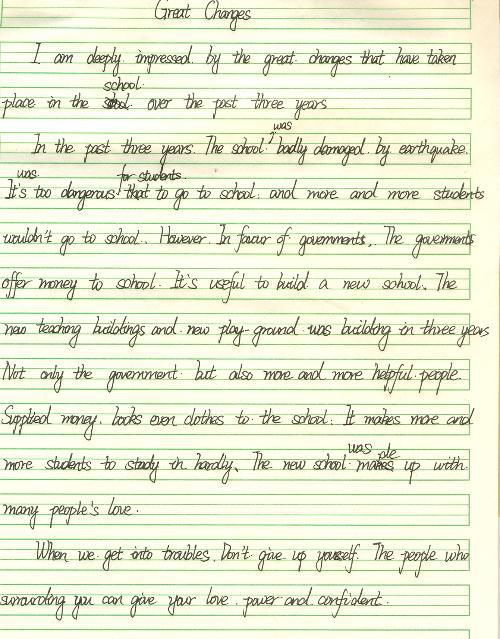 Great Changes
I am deeply impressed by the great changes that have taken
school.
place in the over the past three years
was
In the past three years. The school badly damaged by earthquake.
was for students
It's too dangerous that to go to school. and more and more students
wouldn't go to school. However. In favour of governments, The goverments
offer money to school. It's useful to build a new school. The
new teaching buildings and new play-ground was building in three years
Not only the government but also more and more helpful people.
Supplied money. books even clothes to the school. It makes more and
more students to study in hardly. The new school
was
makes up with
many people's love.
When we get into troubles. Don't give up youself. The people who
surrounding you can give your love. power and confident.